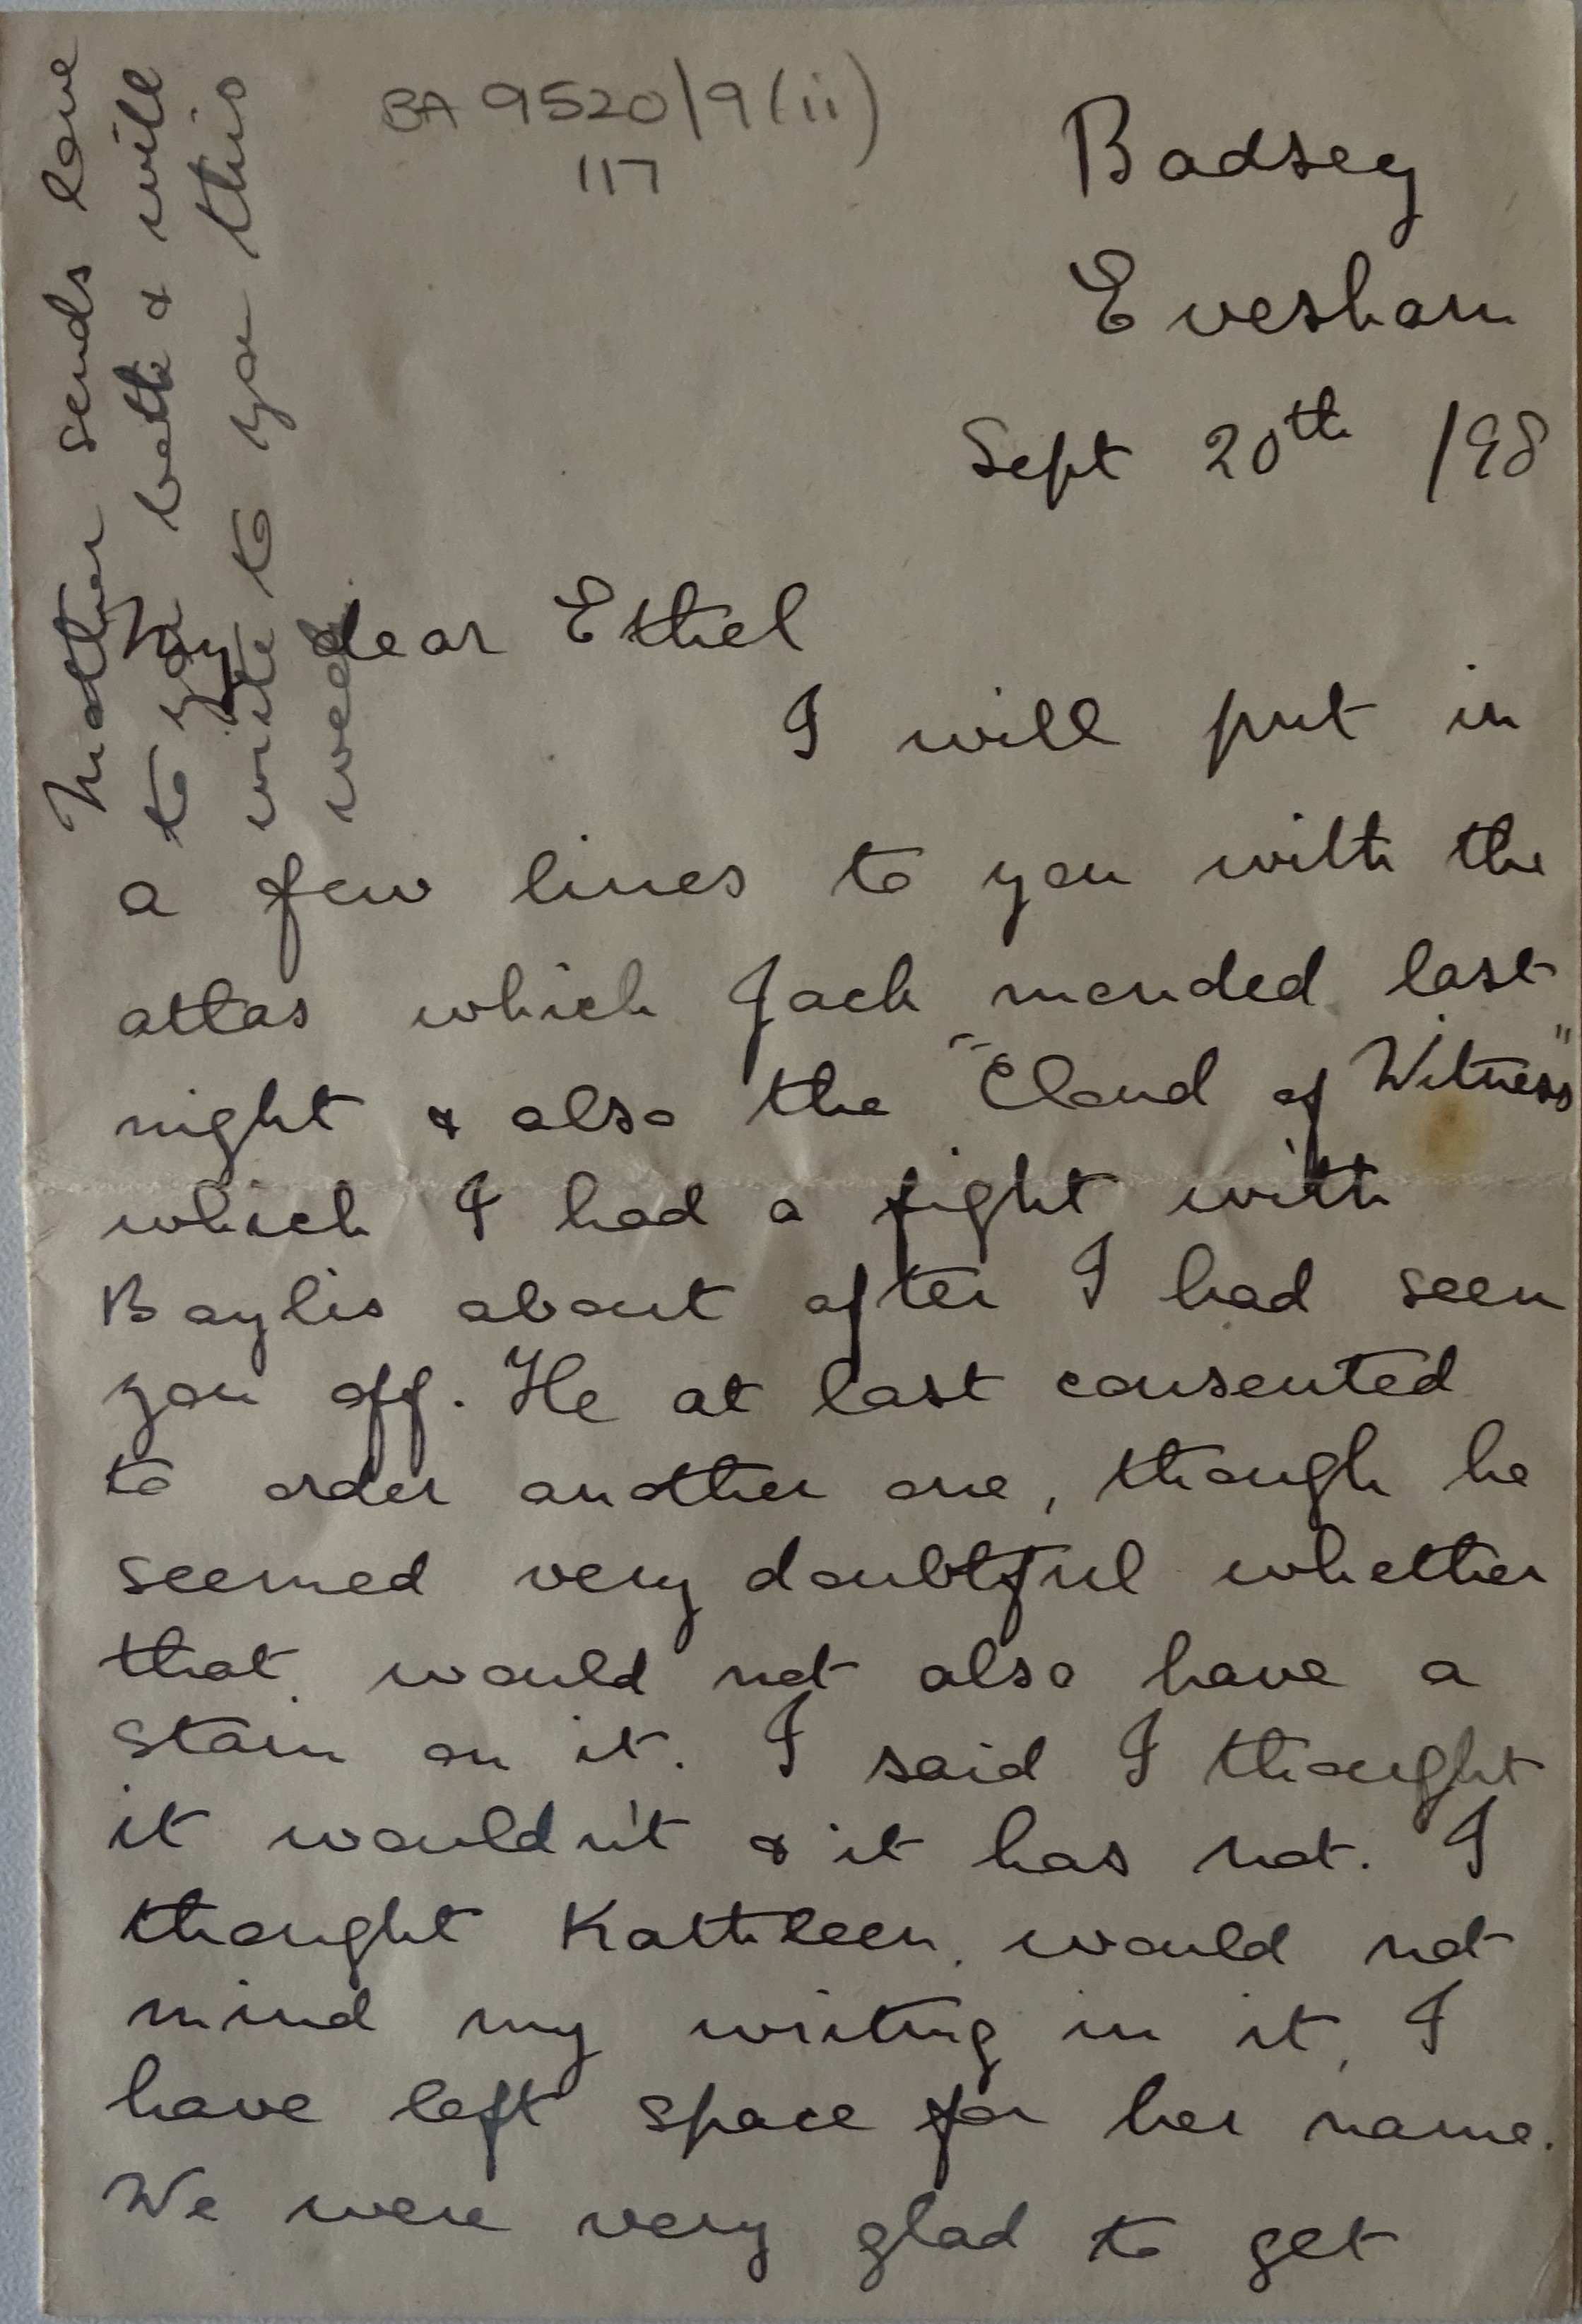 BA 9520/9(ii)
117
Badsey
Evesham
Sept 20th /98
My dear Ethel
I will put in
a few lines to you with the
atlas which Jack mended last
night & also the "Cloud of Witness"
which I had a fight with
Baylis about after I had seen
you off. He at last consented
to order another one, though he
seemed very doubtful whether
that would not also have a
stain on it. I said I thought
it wouldn't & it has not. I
thought Kathleen would not
mind my writing in it, I
have left space for her name.
We were very glad to get
Mother sends love
to you both & will
write to you this
week.